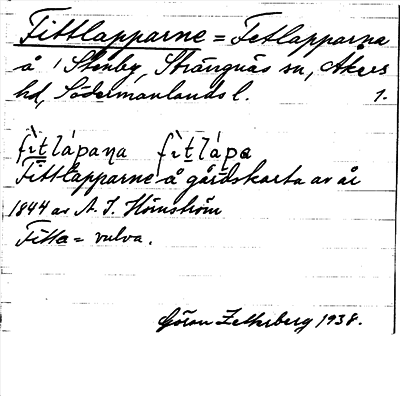 Fittlapparne = Fetlapparna
å Stenby, Strängnäs sn, Åkers
hd, Södermanlands l. 1.
fìtlápaṇa fìtlápa
Fittlapparne å gårdskarta av år
1844 av A. J. Hörnström
Fitta = vulva.
Göran Zetterberg 1938.